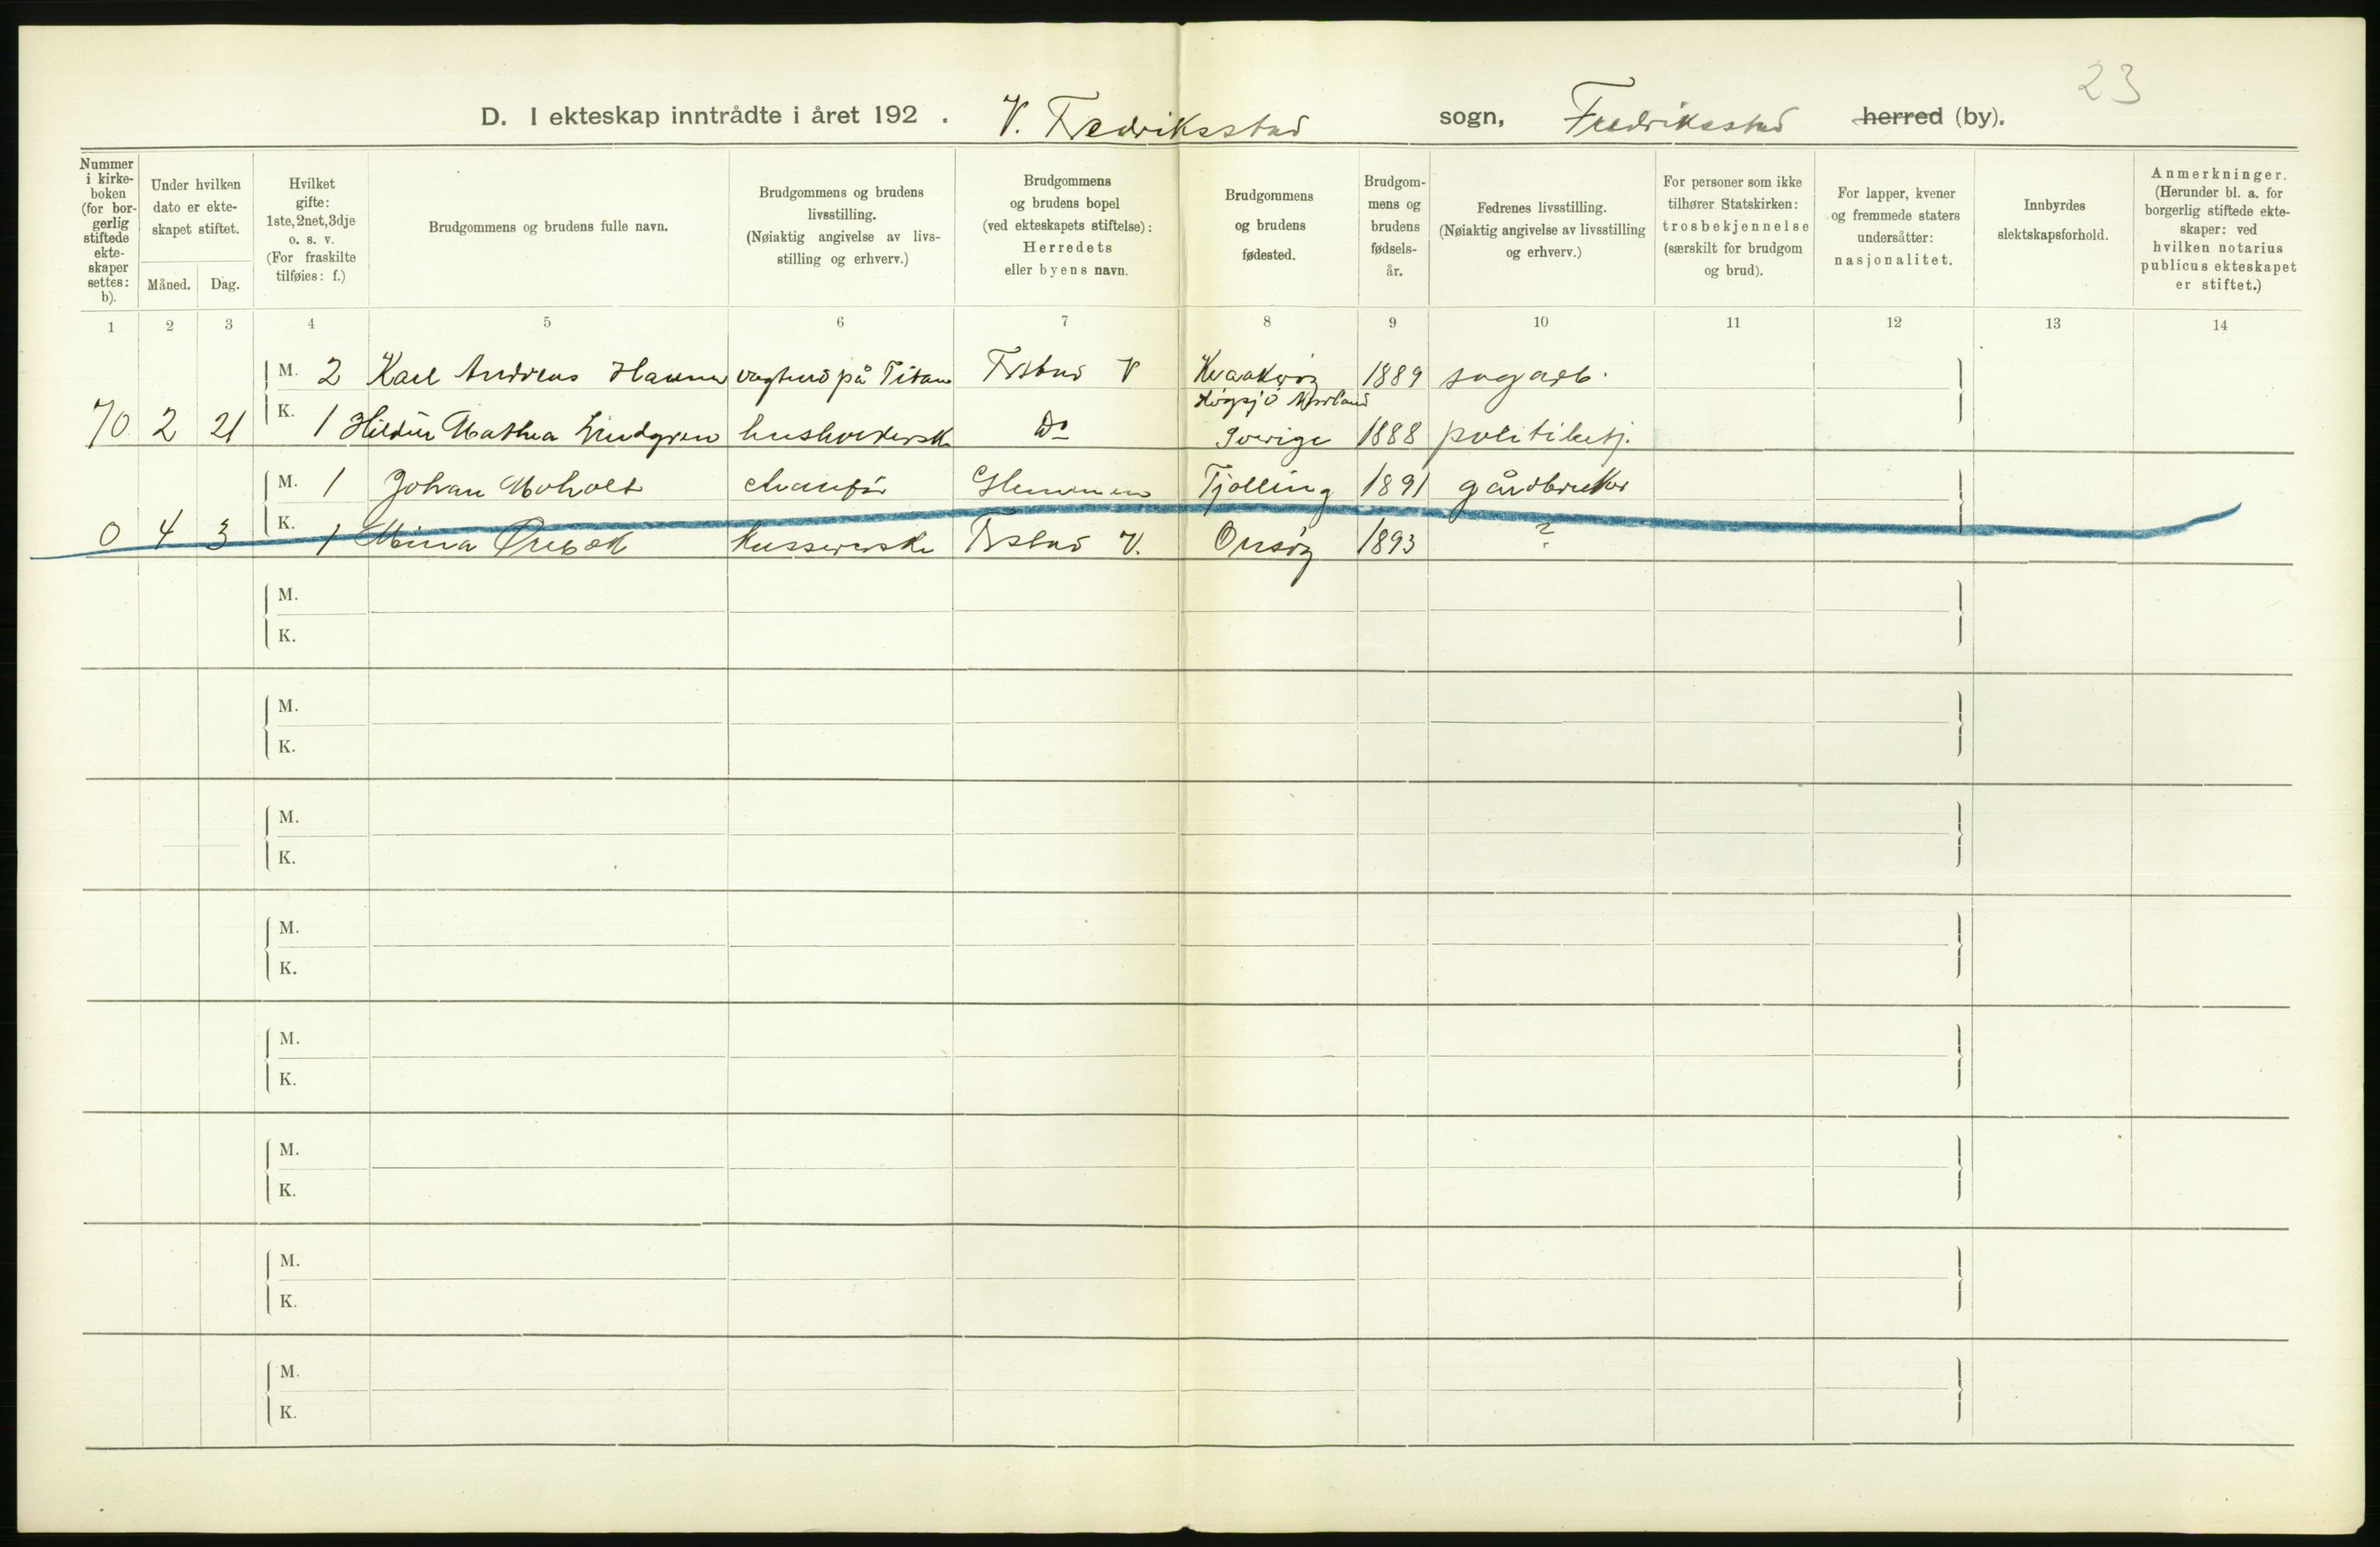 23
D. I ekteskap inntrådte i året 192 . V. Fredriksstad sogn, Fredriksstad herred (by).
Nummer i kirke-boken (for bor-gerlig stiftede ekte-skaper settes: b).
Under hvilken dato er ekte-skapet stiftet.
Måned. Dag.
Hvilket gifte: 1ste, 2net, 3dje o. s. v. (For fraskilte tilføies: f.)
Brudgommens og brudens fulle navn.
Brudgommens og brudens livsstilling. (Nøiaktig angivelse av livs-stilling og erhverv.)
Brudgommens og brudens bopel (ved ekteskapets stiftelse): Herredets eller byens navn.
Brudgommens og brudens fødested.
Brudgom-mens og brudens fødsels-år.
Fedrenes livsstilling. (Nøiaktig angivelse av livsstilling og erhverv.)
For personer som ikke tilhører Statskirken: trosbekjennelse (særskilt for brudgom og brud).
For lapper, kvener og fremmede staters undersåtter: nasjonalitet.
Innbyrdes slektskapsforhold.
Anmerkninger. (Herunder bl. a. for borgerlig stiftede ekte-skaper: ved hvilken notarius publicus ekteskapet er stiftet.)
1 2 3 4 5 6 7 8 9 10 11 12 13 14
M. 2 Karl Andreas Hansen på Titan Frstad V 1889 sagarb.
70 2 21 K. 1 Mathea Lindgren Do Sverige 1888 politibetj.
M. 1 Johan Moholt chaufør Glemmen Tjølling 1891 gårdbruker
0 4 3 K. 1 Mina Frstad V. Onsøy 1893 ?
M.
K.
M.
K.
M.
K.
M.
K.
M.
K.
M.
K.
M.
K.
M.
K.